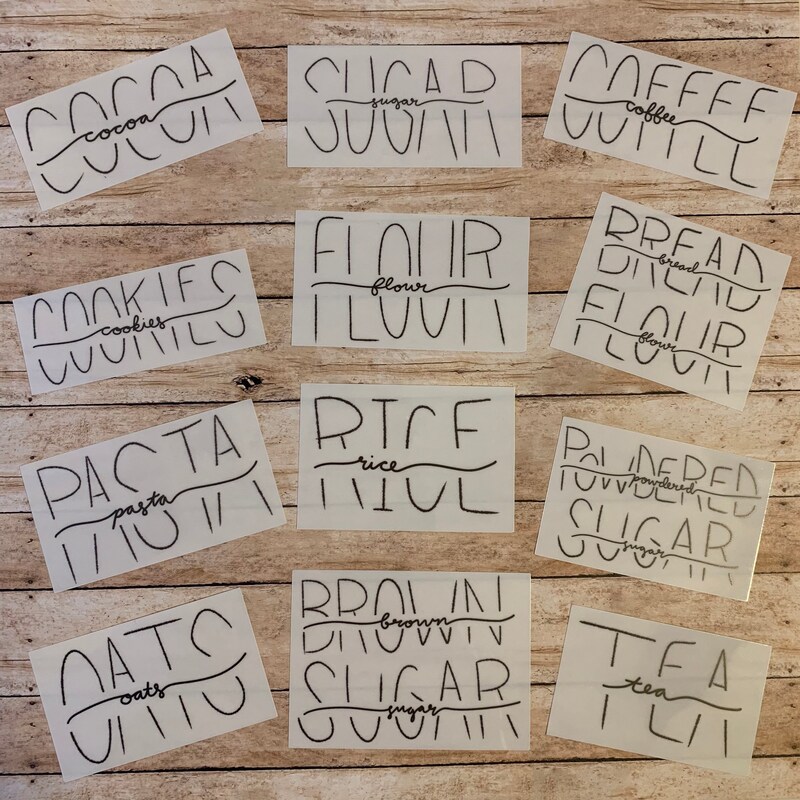 COCOA
cocoa
SUGAR
sugar
COFFEE
coffee
COOKIES
cookies
FLOUR
flour
BREAD
bread
FLOUR
flour
PASTA
pasta
RICE
rice
POWDERED
powdered
SUGAR
sugar
OATS
oats
BROWN
brown
SUGAR
sugar
TEA
tea